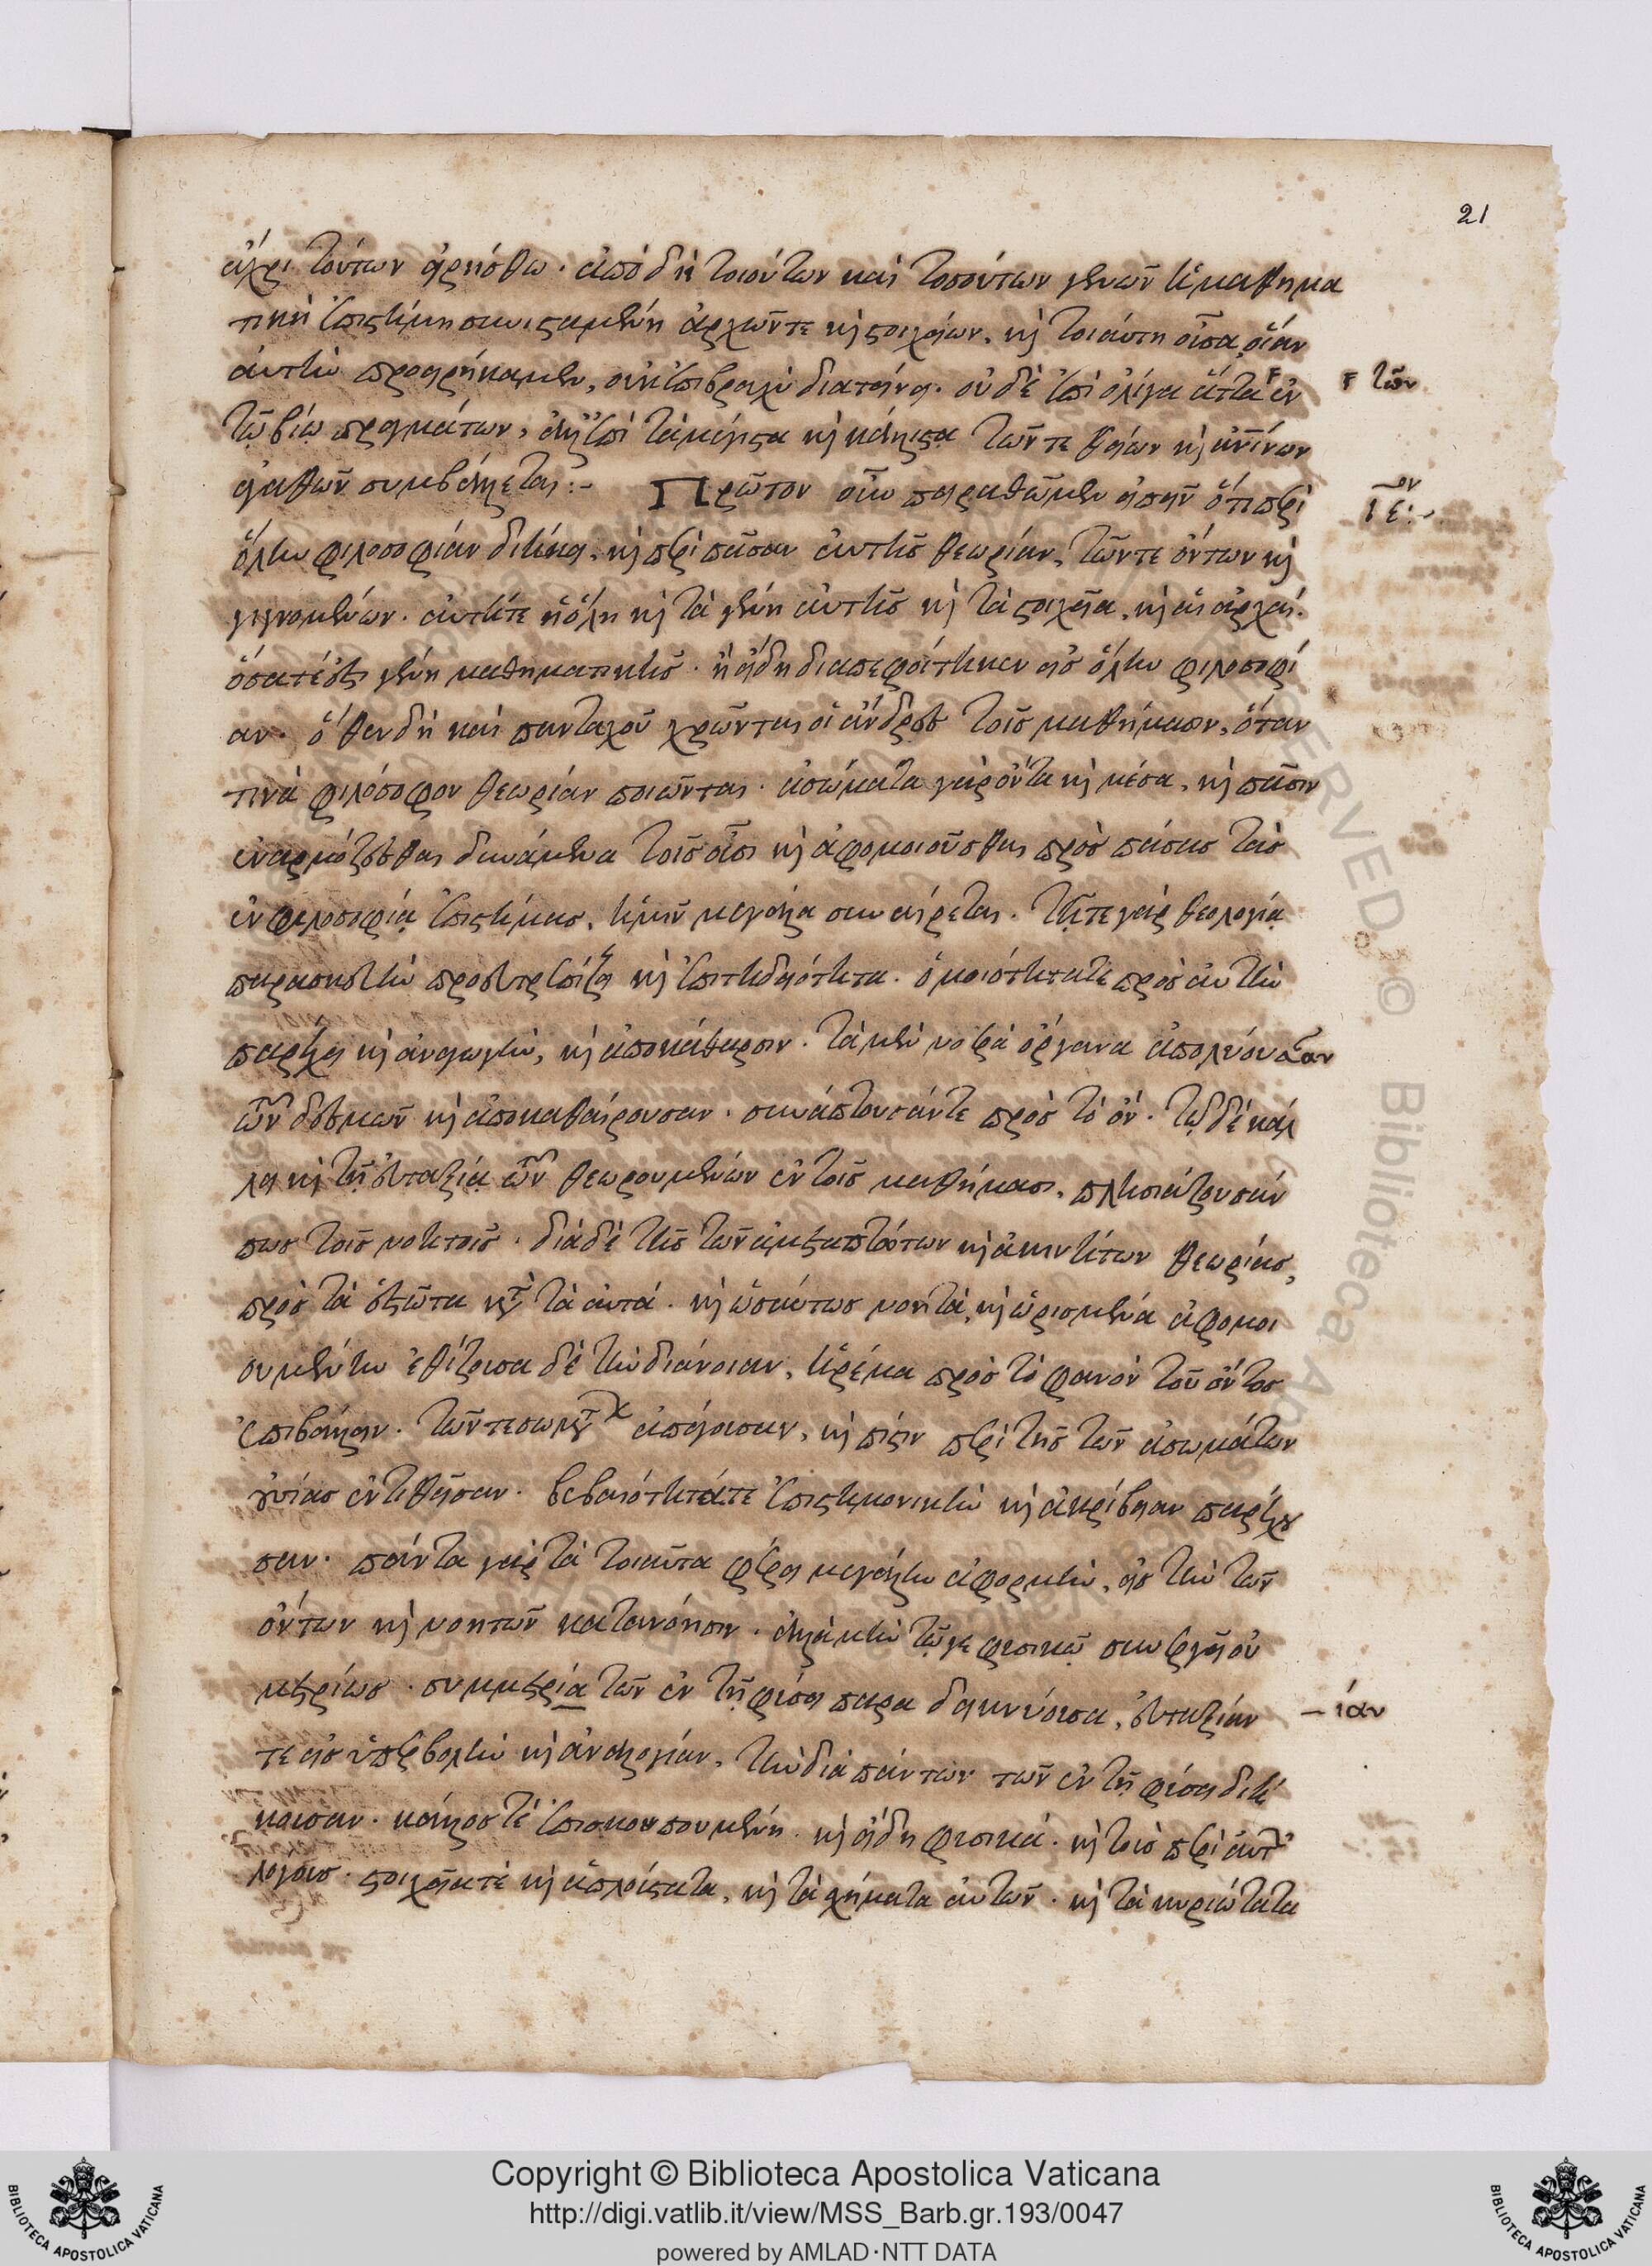 21
ἄχρι τούτων εἰρήσθω. ἀπὸ δὴ τοιούτων καὶ τοσούτων γενῶν ἡ μαθημα
τικὴ ἐπιστήμη συνισταμένη ἀρχῶν τε καὶ στοιχείων, καὶ τοιαύτη οὖσα, οἵαν
αὐτὴν προειρήκαμεν, οὐκ ἐπιβραχὺ διατείνει. οὐδὲ ἐπὶ ὀλίγα ἄττα ἐν
τῶν
τῷ βίῳ πραγμάτων, ἀλλ' ἐπὶ τὰ μέγιστα καὶ κάλλιστα τῶν τε θείων καὶ ἀνθρωπίνων
ἀγαθῶν συμβάλλεται:- Πρῶτον οὖν πειραθῶμεν εἰπεῖν ὅτι περὶ
ιε:
ὅλην φιλοσοφίαν διήκει, καὶ περὶ πᾶσαν αὐτῆς θεωρίαν, τῶν τε ὄντων καὶ
γιγνομένων. αὐτή τε ἡ ὅλη καὶ τὰ γένη αὐτῆς καὶ τὰ στοιχεῖα, καὶ αἱ ἀρχαί.
ὅσα τέ ἐστι γένη μαθηματικῆς. ἢ εἴδη διαπεφοίτηκεν εἰς ὅλην φιλοσοφί
αν. ὅθεν δὴ καὶ πανταχοῦ χρῶνται οἱ ἄνδρες τοῖς μαθήμασιν, ὅταν
τινὰ φιλόσοφον θεωρίαν ποιῶνται. ἀσώματα γὰρ ὄντα καὶ μέσα, καὶ πᾶσιν
ἐναρμόζεσθαι δυνάμενα τοῖς οὖσι καὶ ἀφομοιοῦσθαι πρὸς πάσας τὰς
ἐν φιλοσοφίᾳ ἐπιστήμας, ἡμῖν μεγάλα συναίρεται. τῇ τε γὰρ θεολογίᾳ
παρασκευὴν προευτρεπίζει καὶ ἐπιτηδειότητα. ὁμοιότητά τε πρὸς αὐτὴν
παρέχει καὶ ἀναγωγὴν, καὶ ἀποκάθαρσιν. τὰ μὲν νοερὰ ὄργανα ἀπολύουσαν
τῶν δεσμῶν καὶ ἀποκαθαίρουσαν. συνάπτουσάν τε πρὸς τὸ ὄν. τῷ δὲ κάλ
λει καὶ τῇ εὐταξίᾳ τῶν θεωρουμένων ἐν τοῖς μαθήμασι, πλησιάζουσάν
πως τοῖς νοητοῖς. διὰ δὲ τῆς τῶν ἀμεταπτώτων καὶ ἀκινήτων θεωρίας,
πρὸς τὰ ἑστῶτα κατὰ τὰ αὐτά. καὶ ὡσαύτως νοητὰ, καὶ ὡρισμένα ἀφομοι
ουμένην ἐθίζουσα δὲ τὴν διάνοιαν, ἠρέμα πρὸς τὸ φανὸν τοῦ ὄντος
ἐπιβάλλειν. τῶν τε σωμάτων ἀπάγουσαν, καὶ πίστιν περὶ τῆς τῶν ἀσωμάτων
οὐσίας ἐντιθεῖσαν. βεβαιότητά τε ἐπιστημονικὴν καὶ ἀκρίβειαν παρέχου
σαν. πάντα γὰρ τὰ τοιαῦτα φέρει μεγάλην ἀφορμὴν, εἰς τὴν τῶν
ὄντων καὶ νοητῶν κατανόησιν. ἀλλὰ μὴν τῷ γε φυσικῷ συνεργεῖ οὐ
μετρίως. συμμετρία τῶν ἐν τῇ φύσει παραδεικνύουσα, εὐταξίαν
-ίαν
τε εἰς ὑπερβολὴν καὶ ἀναλογίαν, τὴν διὰ πάντων τῶν ἐν τῇ φύσει διή
κουσαν. κάλλος τὲ ἐπισκοπουμένη. καὶ εἴδη φυσικά. καὶ τοὺς περὶ αὐτῶν
λόγους. στοιχεῖά τε καὶ ἁπλούστατα, καὶ τὰ σχήματα αὐτῶν. καὶ τὰ κυριώτατα
Copyright © Biblioteca Apostolica Vaticana
http://digi.vatlib.it/view/MSS_Barb.gr.193/0047
powered by AMLAD·NTT DATA
BIBLIOTECA APOSTOLICA VATICANA
BIBLIOTECA APOSTOLICA VATICANA